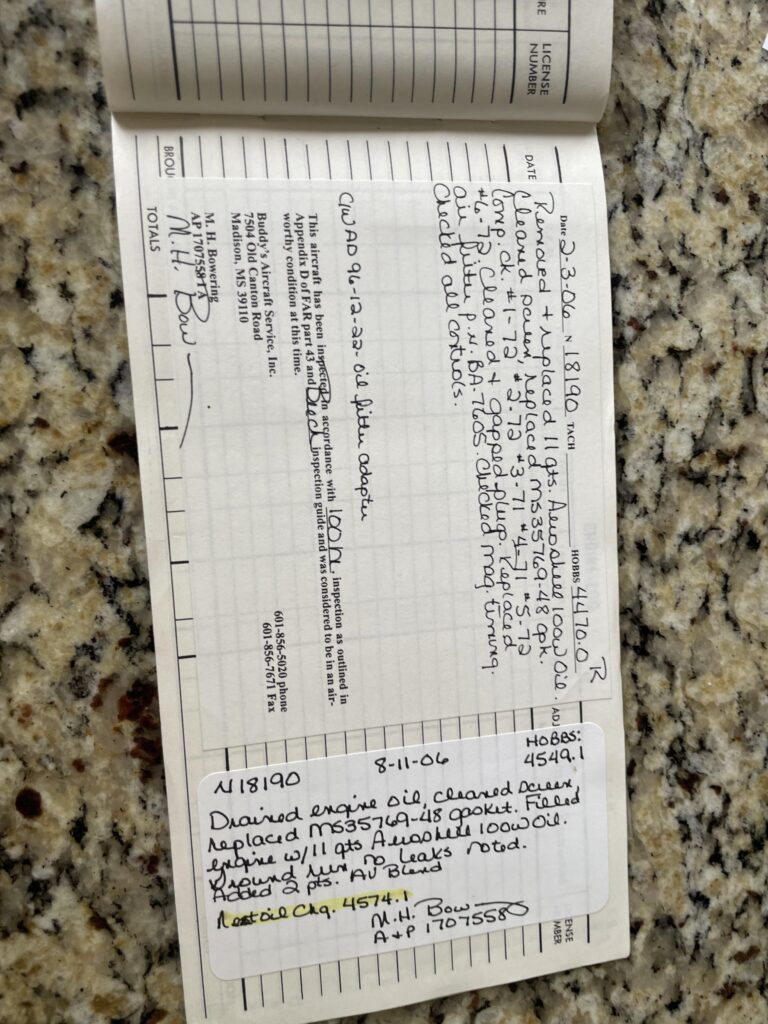 RE
LICENSE
NUMBER
DATE
Date 2-3-06 N 18190 TACH HOBBS 4470.0
R
Removed + replaced 11 qts. Aeroshell 100W oil.
Cleaned screen, replaced MS35769-48 gsk.
Comp. ck. #1-72 #2-72 #3-71 #4-71 #5-72
#6-72 Cleaned + gapped plugs. Replaced
air filter P.N. BA. 7605. Checked mag. timing.
Checked all controls.
C/W AD 96-12-22- oil filter adapter
This aircraft has been inspected in accordance with 100 hr. inspection as outlined in
Appendix D of FAR part 43 and Beech inspection guide and was considered to be in an air-
worthy condition at this time.
Buddy's Aircraft Service, Inc.
7504 Old Canton Road
Madison, MS 39110
601-856-5020 phone
601-856-7671 Fax
M. H. Bowering
AP 1707558 I A
M. H. Bow
BROU
TOTALS
ADJ
ENSE
MBER
N18190 8-11-06 HOBBS:
4549.1
Drained engine oil, cleaned screen,
replaced MS35769-48 gasket. Filled
engine w/ 11 qts Aeroshell 100W oil.
Ground run no leaks noted.
Added 2 pts. AV Blend
Next oil Chg. 4574.1
M.H. Bow
A+P 1707558